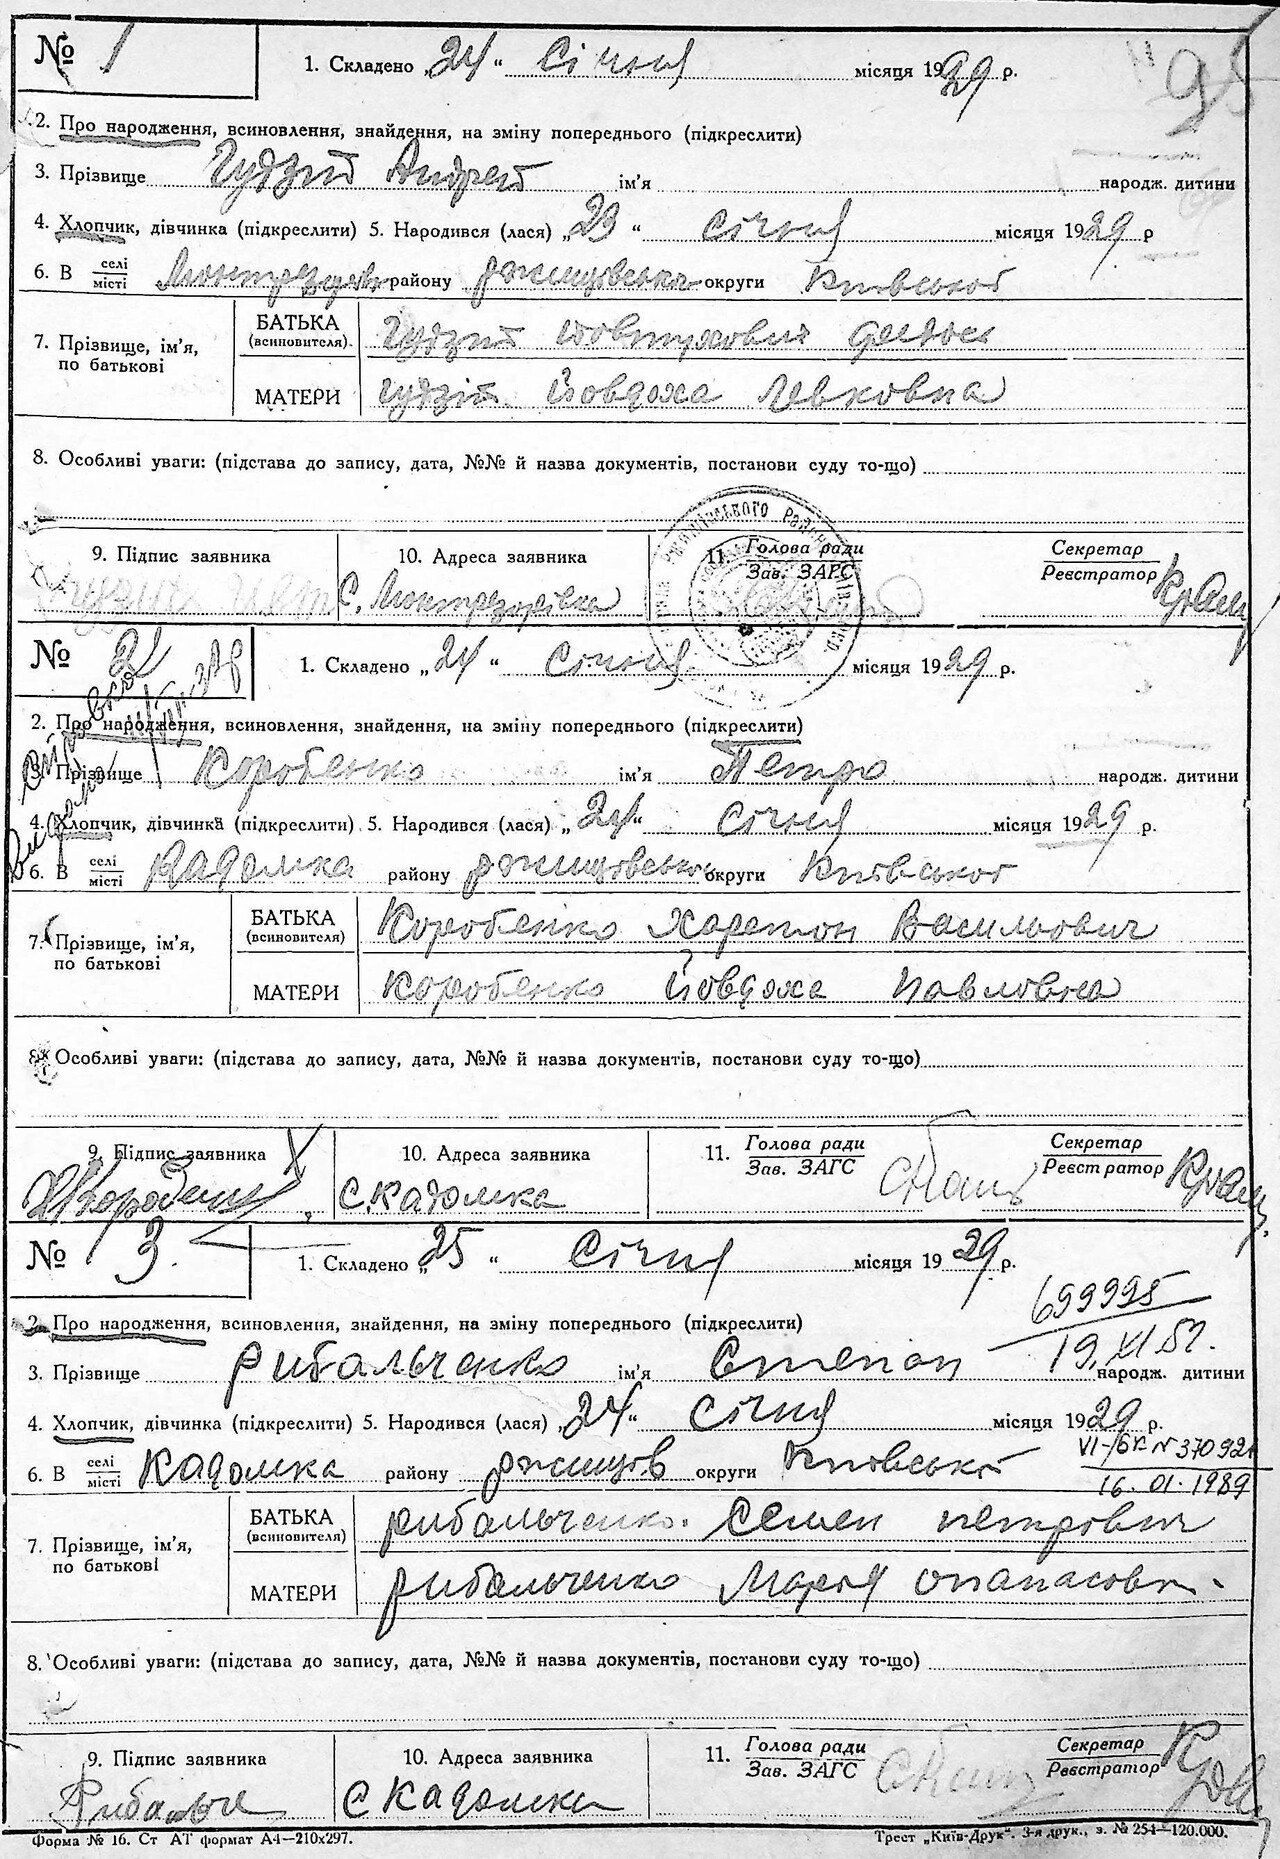 № 1
1. Складено „24“ Січня місяця 1929 р.
95
2. Про народження, всиновлення, знайдення, на зміну попереднього (підкреслити)
3. Прізвище Гудзій Андрей ім'я народж. дитини
4. Хлопчик, дівчинка (підкреслити) 5. Народився (лася) „23“ Січня місяця 1929 р
6. В селі/місті району Ржищівськ округи Київської
7. Прізвище, ім'я, по батькові
БАТЬКА (всиновителя) Гудзій
МАТЕРИ Гудзій Йовдоха Левковна
8. Особливі уваги: (підстава до запису, дата, №№ й назва документів, постанови суду то-що)
9. Підпис заявника
10. Адреса заявника
11. Голова ради / Зав. ЗАГС
Секретар / Реєстратор
№ 2
1. Складено „24“ Січня місяця 1929 р.
2. Про народження, всиновлення, знайдення, на зміну попереднього (підкреслити)
3. Прізвище Коробенко ім'я Петро народж. дитини
4. Хлопчик, дівчинка (підкреслити) 5. Народився (лася) „24“ Січня місяця 1929 р.
6. В селі/місті Кадомка району округи Київської
7. Прізвище, ім'я, по батькові
БАТЬКА (всиновителя) Коробенко Харетон Васильович
МАТЕРИ Коробенко Йовдоха Павловна
8. Особливі уваги: (підстава до запису, дата, №№ й назва документів, постанови суду то-що)
9. Підпис заявника
10. Адреса заявника С. Кадомка
11. Голова ради / Зав. ЗАГС
Секретар / Реєстратор
№ 3.
1. Складено „25“ Січня місяця 1929 р.
699995
19.XI.52.
2. Про народження, всиновлення, знайдення, на зміну попереднього (підкреслити)
3. Прізвище Рибальченко ім'я Степан народж. дитини
4. Хлопчик, дівчинка (підкреслити) 5. Народився (лася) „24“ Січня місяця 1929 р.
VI-БК № 370921
16.01.1989
6. В селі/місті Кадомка району Ржищів округи Київської
7. Прізвище, ім'я, по батькові
БАТЬКА (всиновителя) Рибальченко Семен Петрович
МАТЕРИ Рибальченко Мария
8. Особливі уваги: (підстава до запису, дата, №№ й назва документів, постанови суду то-що)
9. Підпис заявника
10. Адреса заявника С Кадомка
11. Голова ради / Зав. ЗАГС
Секретар / Реєстратор
Форма № 16. Ст АТ формат А4—210х297.
Трест „Київ-Друк“. 3-я друк., з. № 254—120.000.